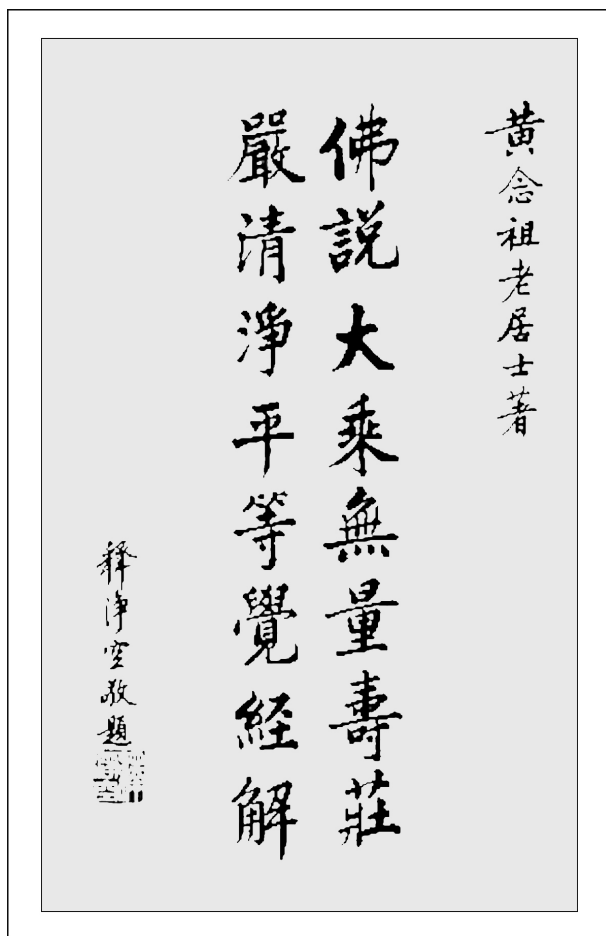 黃念祖老居士著
佛説大乘無量壽莊
嚴清淨平等覺經解
釋淨空敬題